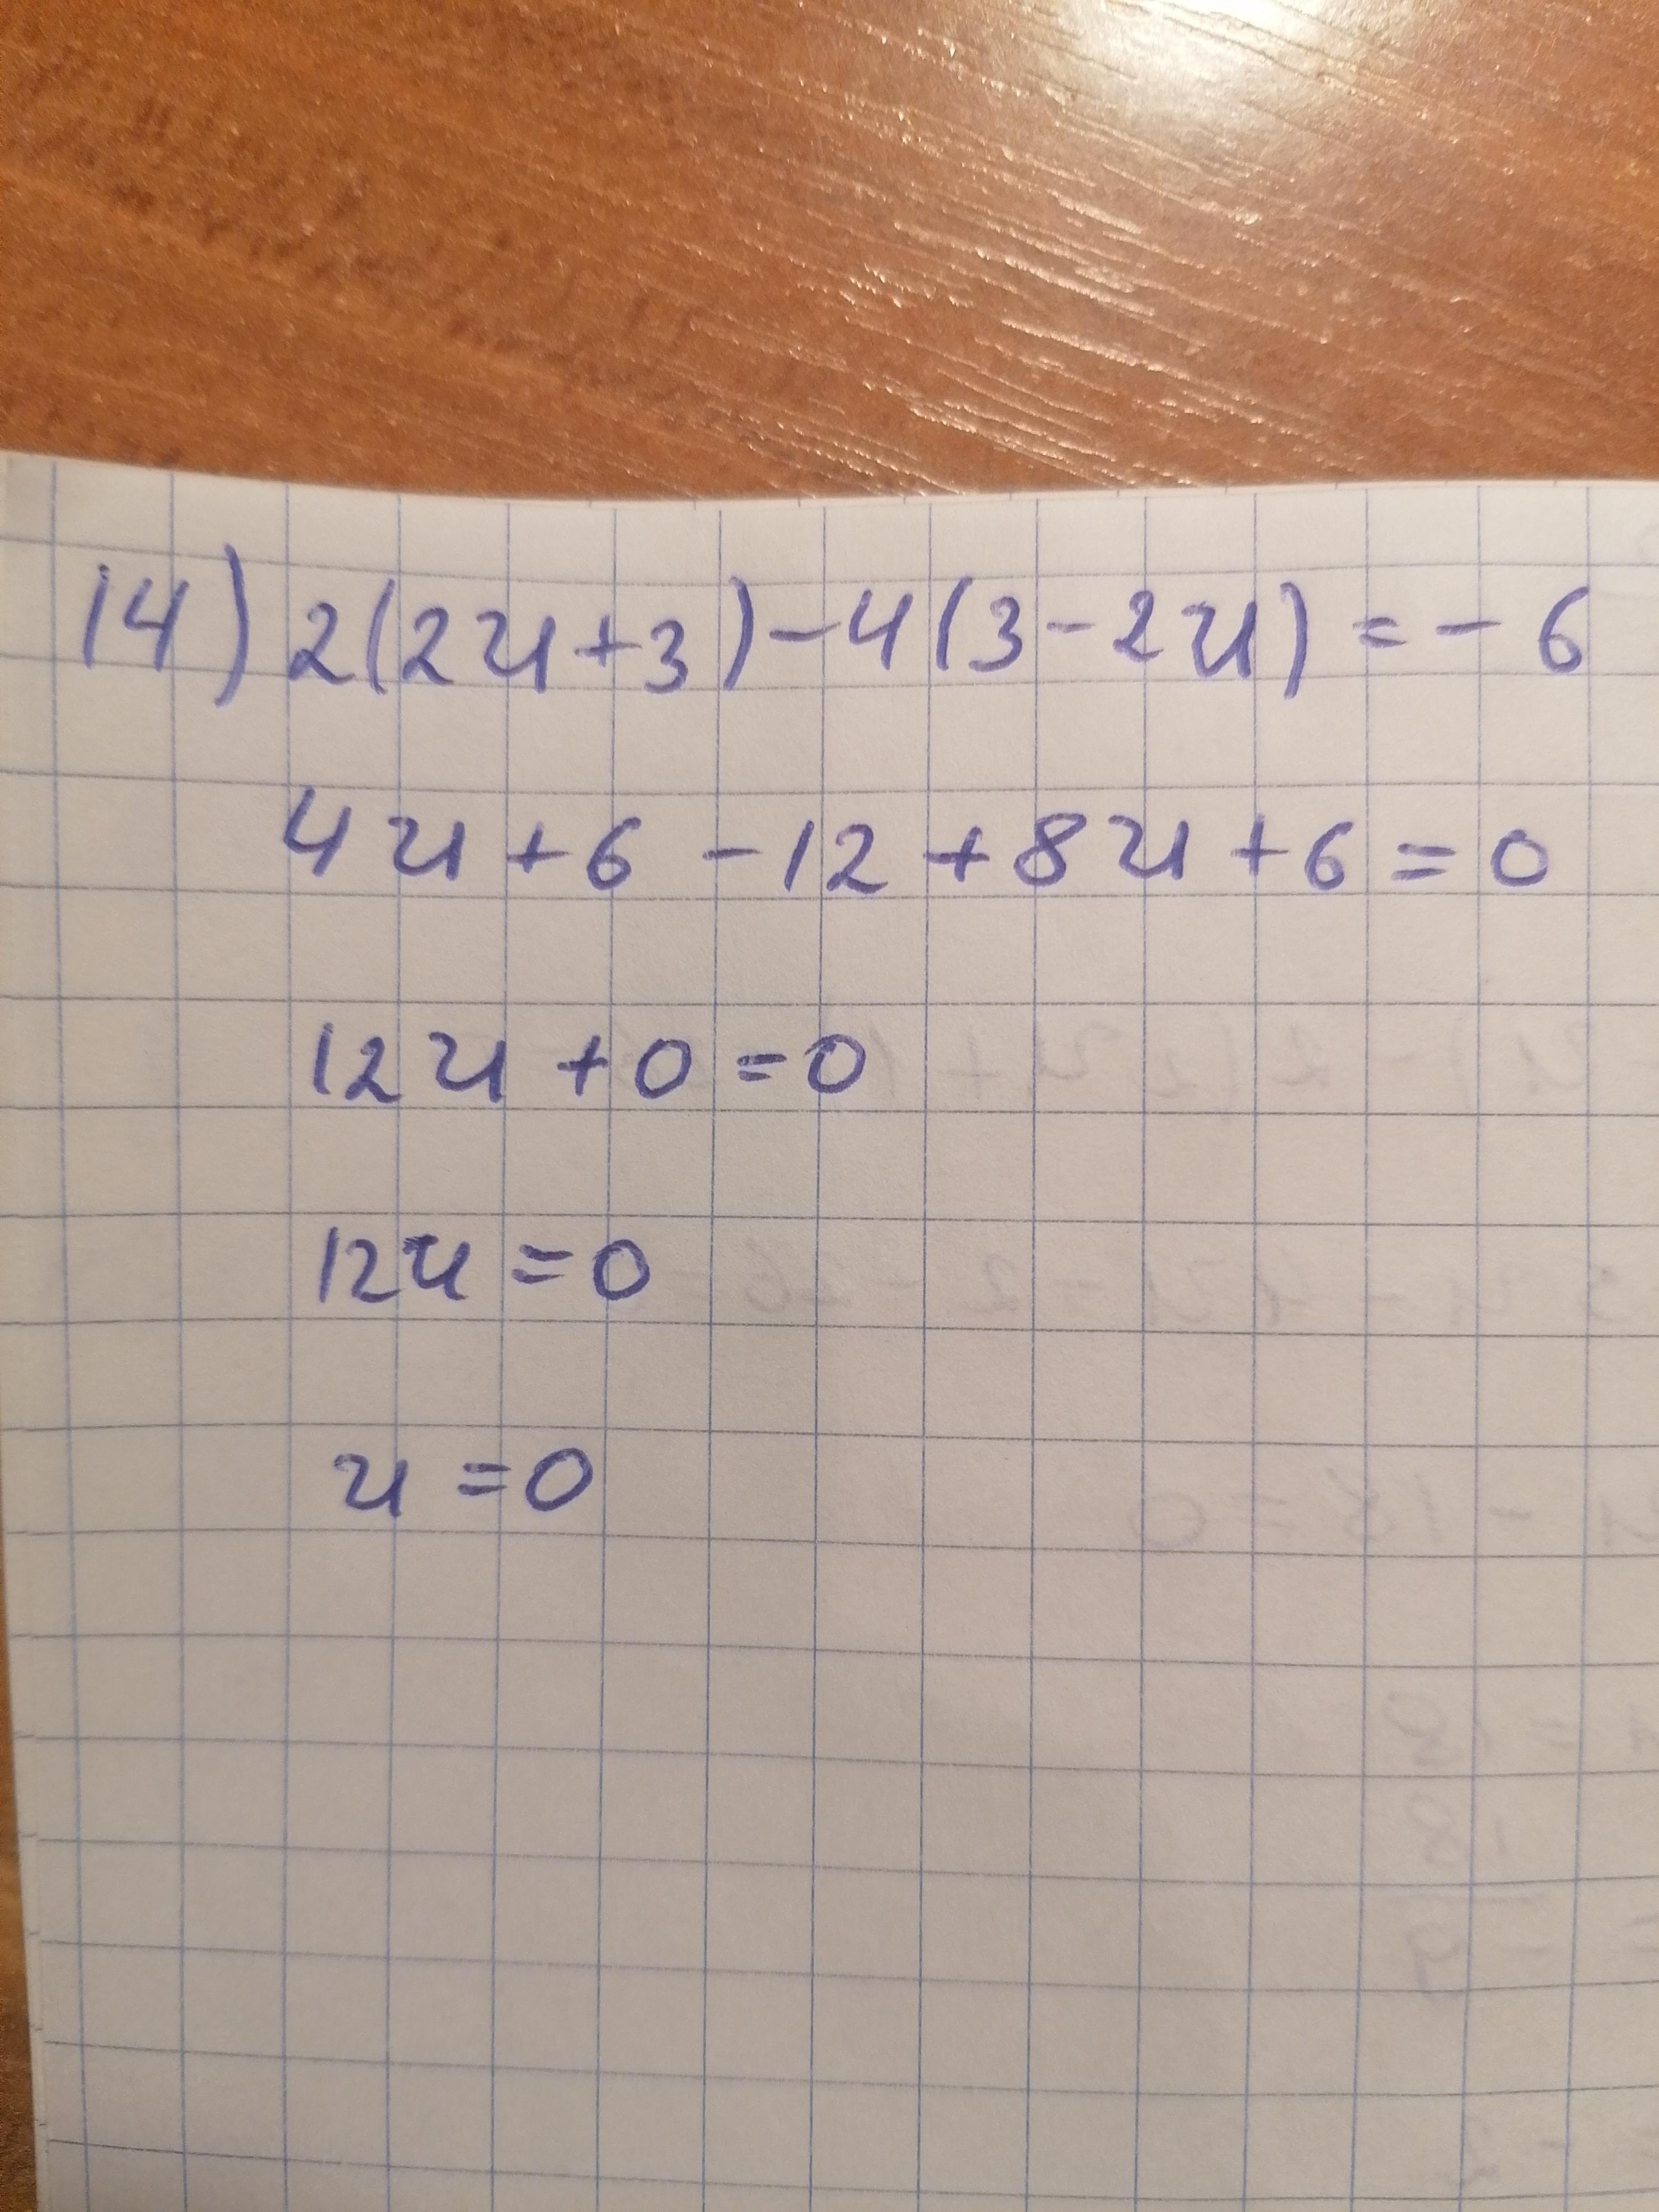 14) 2(2u+3)-4(3-2u)=-6
4u+6-12+8u+6=0
12u+0=0
12u=0
u=0